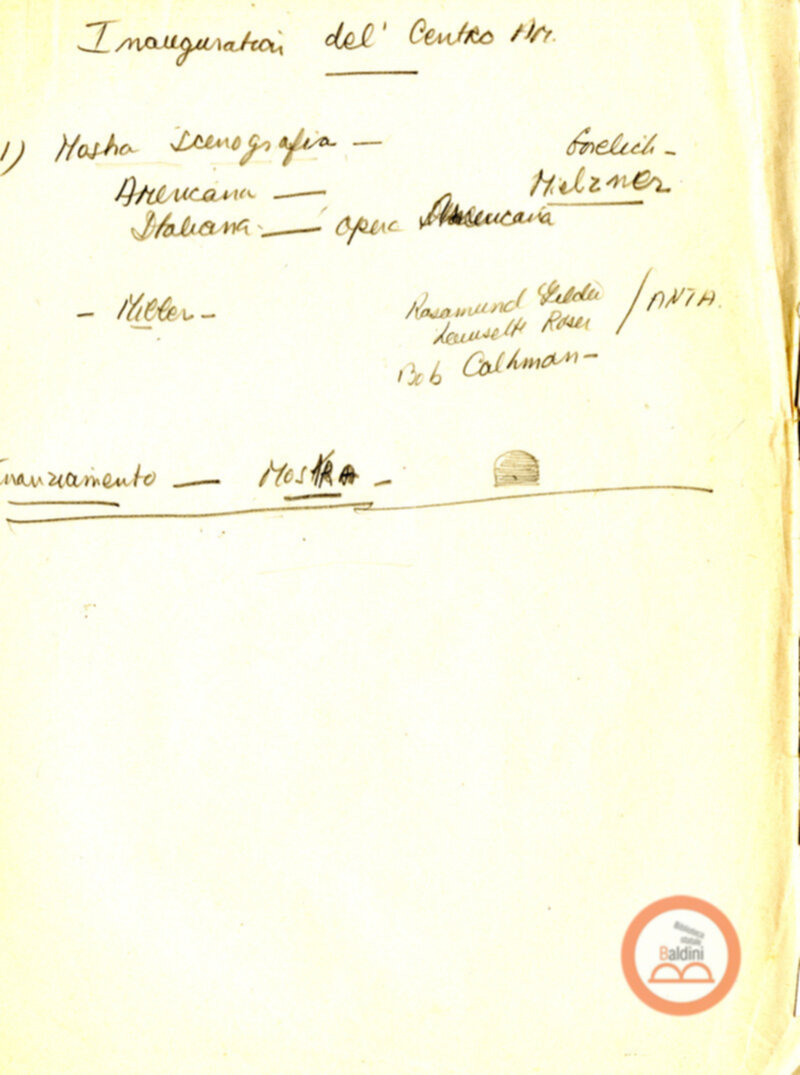 Inauguration del' Centro Am.
1) Mostra Scenografia — Gorelich -
Americana — Mielzner
Italiana — opera Americana
- Miller -
Rosamund Gilder / ANTA.
Roser
Bob Calhman -
inanziamento — MOSTRA -
Biblioteca
statale
Baldini